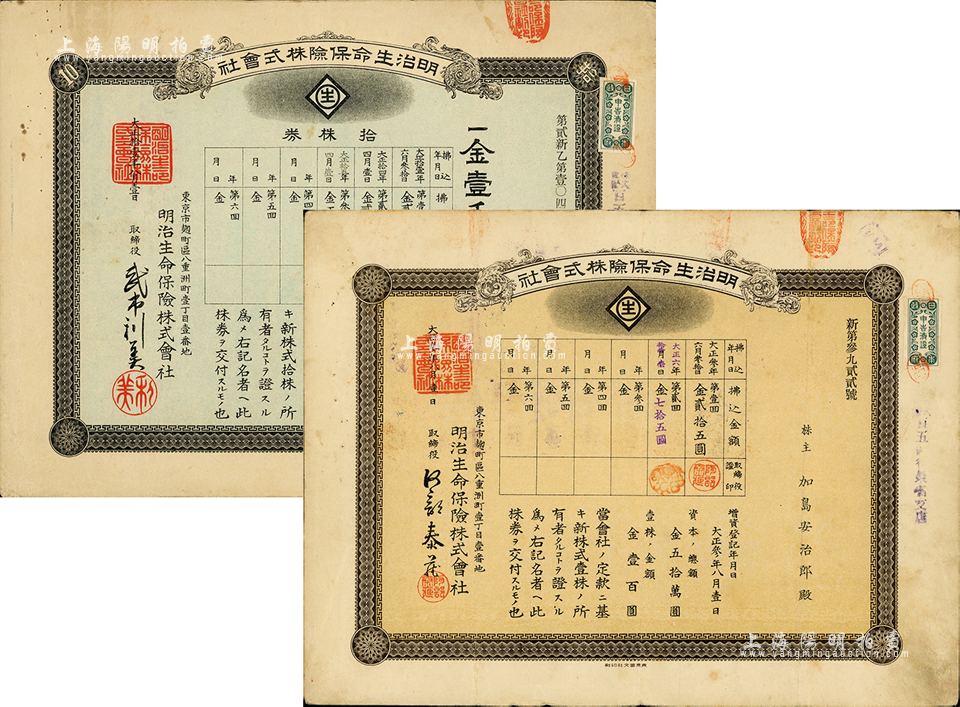 上海陽明拍賣
www.yangmingauction.com
明治生命保險株式會社
10
拾
生
拾株券
第貳新乙第壹〇四
一金壹
拂込年月日
大正拾壹年六月叁拾日
大正拾四年四月壹日
四月壹日
年月日
年月日
年月日
第五回
金
第六回
金
キ新株式拾株ノ所
有者タルコトヲ證スル
爲メ右記名者ヘ此
株券ヲ交付スルモノ也
東京市麹町區八重洲町壹丁目壹番地
明治生命保險株式會社
取締役
明治生命保險株式會社
生
新第叁九貳貳號
株主 加島安治郎殿
拂込年月日
拂込金額
取締役證印
大正叁年六月叁拾日
第壹回
金貳拾五圓
大正六年
第貳回
金七拾五圓
年月日
第參回
金
年月日
第四回
金
年月日
第五回
金
年月日
第六回
金
增資登記年月日
大正參年八月壹日
資本ノ總額
金五拾萬圓
壹株ノ金額
金壹百圓
當會社ノ定款ニ基
キ新株式壹株ノ所
有者タルコトヲ證スル
爲メ右記名者ヘ此
株券ヲ交付スルモノ也
東京市麹町區八重洲町壹丁目壹番地
明治生命保險株式會社
取締役
阿部泰藏
上海陽明拍賣
www.yangmingauction.com
上海陽明拍賣
www.yangmingauction.com